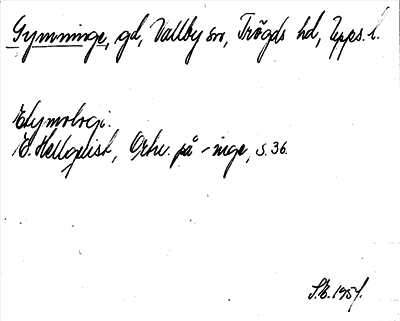 Gymninge, gd, Vallby sn, Trögds hd, Upps. l.
Etymologi.
E. Hellquist, Ortn. på -inge, s. 36.
S.E. 1951.